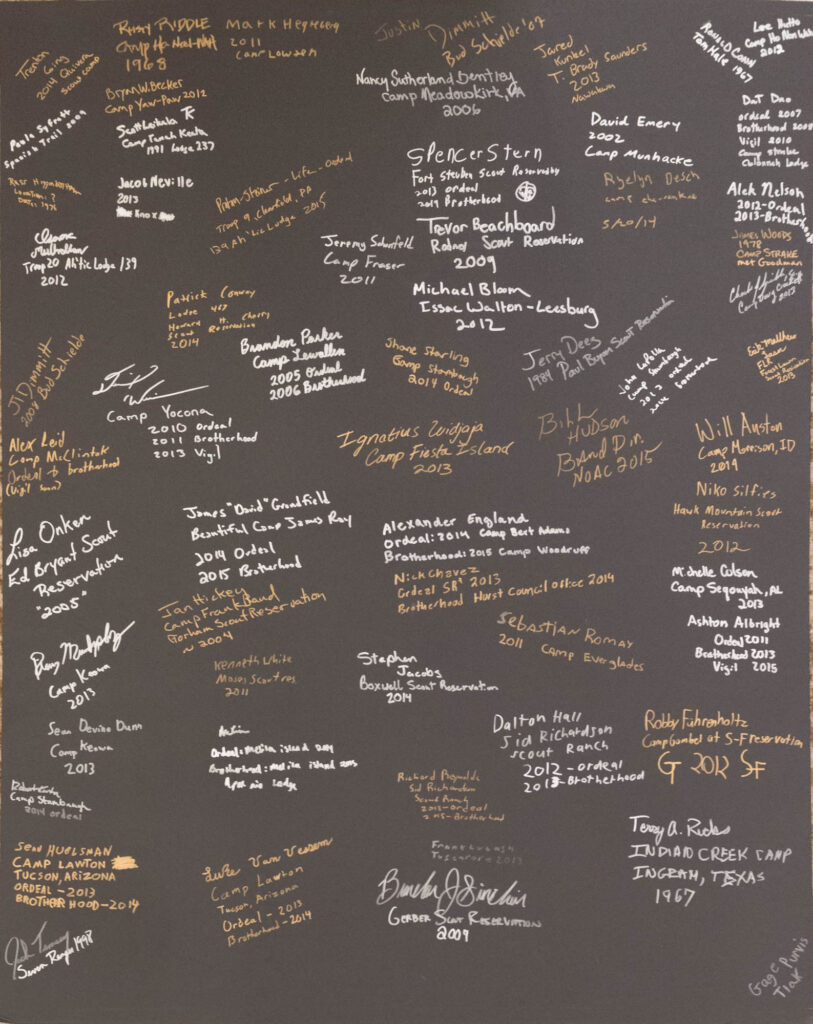 Trenton
Going
2014 Quivira
Scout Camp
Rusty RIDDLE
Camp Ho-Non-Wah
1968
Mark Hegreberg
2011
Camp Lawson
Justin Dimmitt
Bud Schiele '07
Nancy Sutherland Bentley
Camp Meadowkirk, VA
2006
Jared
Kunkel
T. Brady Saunders
2013
Nawakwa
Ronald Camp
Tom Hale 1967
Lee Hutto
Camp Ho Non Wah
2012
Bryan W. Becker
Camp Yaw-Paw 2012
Paolo
Spanish Trail 2009
Scott
Camp Tomah
1991 Lodge 237
David Emery
2002
Camp Munhacke
Dat Dao
ordeal 2007
Brotherhood 2008
Vigil 2010
Camp Strake
Colonneh Lodge
Location: ?
Date: 1971
Jacob Neville
2013
Knox
- Life - Ordeal
Troop 9, Clearfield, PA
139 Ah'Tic Lodge 2015
SPENCER STERN
Fort Steuben Scout Reservation
2013 ordeal
2014 Brotherhood
Ryelyn Desch
camp
5/20/14
Alek Nelson
2012-Ordeal
2013-Brotherhood
Mulhollan
Troop 20 Ah'tic Lodge 139
2012
Jeremy Schurfeld
Camp Fraser
2011
Trevor Beachboard
Rodney Scout Reservation
2009
James Woods
1978
CAMP STRAKE
met Goodman
Patrick Conway
Lodge 467
Howard H. Cherry
Scout Reservation
2014
Michael Bloom
Issac Walton-Leesburg
2012
2013
Brandon Parker
Camp Lewallen
2005 Ordeal
2006 Brotherhood
Shane Starling
Camp Stambaugh
2014 Ordeal
Jerry Dees
1984 Paul Bryant Scout Reservation
John
Camp Stambaugh
2013 ordeal
2014 Brotherhood
Matthew
2013
JJ Dimmitt
2008 Bud Schiele
Camp Yocona
2010 Ordeal
2011 Brotherhood
2013 Vigil
Alex Leid
Camp McClintok
Ordeal to brotherhood
(Vigil soon)
Ignatius Widjaja
Camp Fiesta Island
2013
Bill
HUDSON
Band Dir.
NOAC 2015
Will Auston
Camp Morrison, ID
2014
Niko Silfies
Hawk Mountain Scout
Reservation
2012
Lisa Onken
Ed Bryant Scout
Reservation
"2005"
James "David" Grantfield
Beautiful Camp James Ray
2014 Ordeal
2015 Brotherhood
Alexander England
Ordeal: 2014 Camp Bert Adams
Brotherhood: 2015 Camp Woodruff
Nick Chavez
Ordeal SR² 2013
Brotherhood Hurst Council Office 2014
Michelle Colson
Camp Sequoyah, AL
2013
Ian Hickey
Camp Frank Rand
Gorham Scout Reservation
~ 2004
Sebastian Romay
2011 Camp Everglades
Ashton Albright
Ordeal 2011
Brotherhood 2013
Vigil 2015
Murphy
Camp Keowa
2013
Kenneth White
Moses Scout res
2011
Stephen
Jacobs
Boxwell Scout Reservation
2014
Sean Devine Dunn
Camp Keowa
2013
Ordeal: Media island 2014
Brotherhood: Media island 2015
Lodge
Dalton Hall
Sid Richardson
Scout Ranch
2012-ordeal
2013-Brotherhood
Robby Fuhrenholtz
Camp Gamble at S-F reservation
G 2012 SF
Camp Stambaugh
2014 ordeal
Richard Reynolds
Sid Richardson
Scout Ranch
2013-ordeal
2015-Brotherhood
Sean HUELSMAN
CAMP LAWTON
TUCSON, ARIZONA
ORDEAL-2013
BROTHERHOOD-2014
Luke Van Vessem
Camp Lawton
Tucson, Arizona
Ordeal - 2013
Brotherhood - 2014
Frank
Tuscarora 2013
Terry A. Ricks
INDIAN CREEK CAMP
INGRAM, TEXAS
1967
J Sinclair
GERBER SCOUT RESERVATION
2009
Seven Ranges 1998
Gage Purvis
Tlak